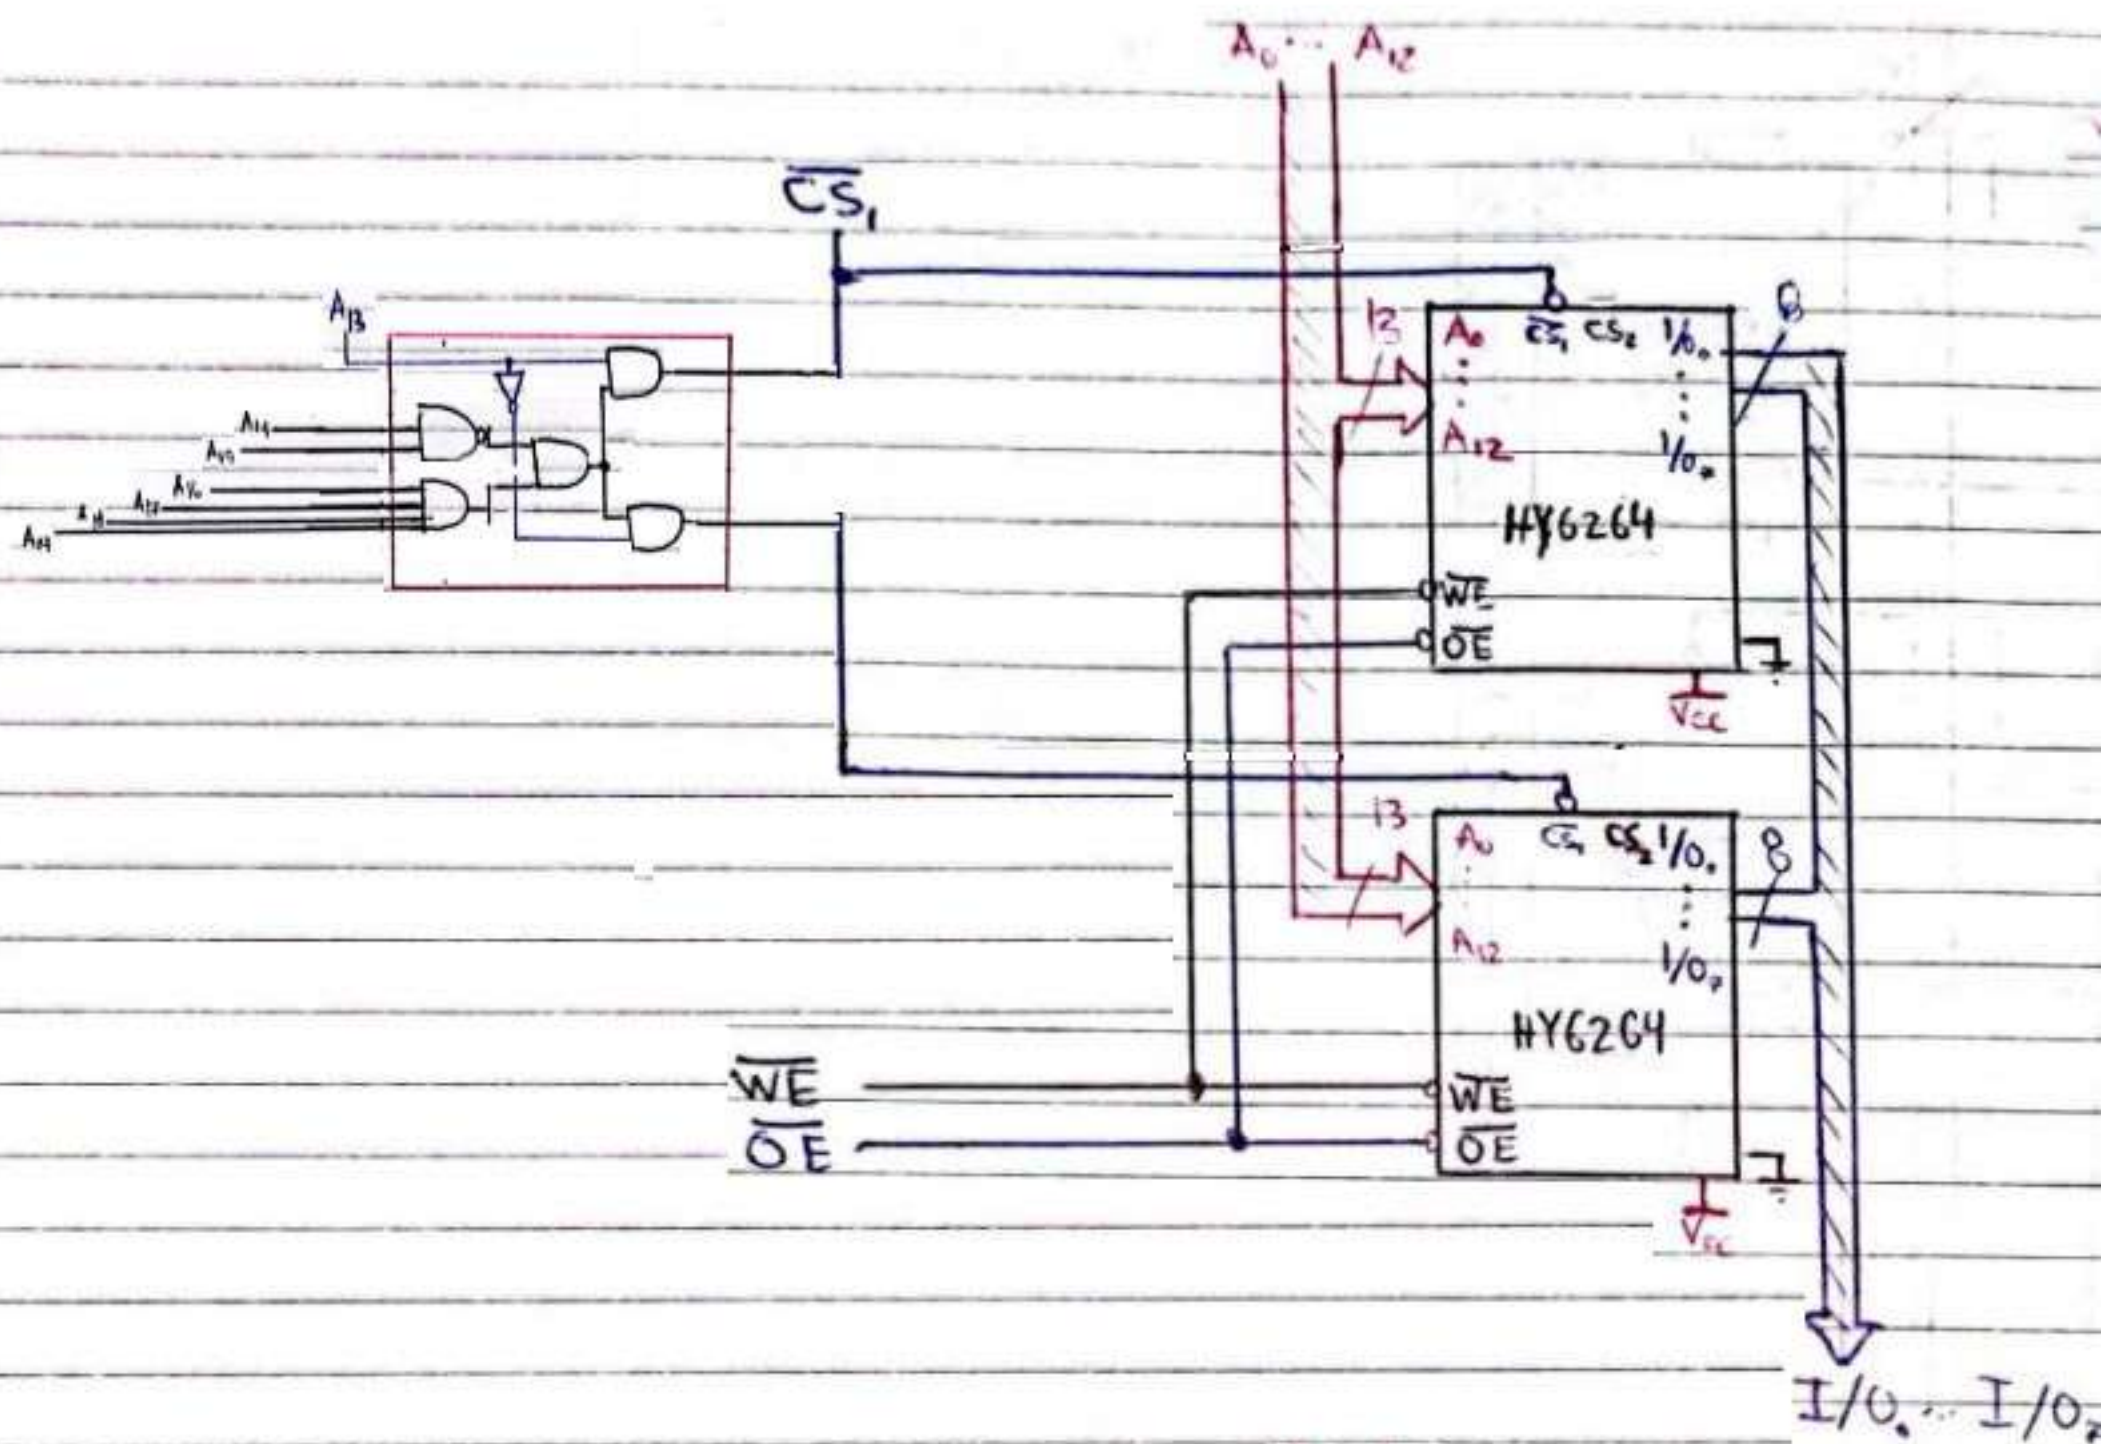 A₀ ... A₁₂
C̅S̅₁
A₁₃
A₁₄
A₁₆
A₁₇
A₁₈
A₁₉
13
A₀
⋮
A₁₂
C̅S̅₁ CS₂ I/O₀
⋮
I/O₇
8
HY6264
W̅E̅
O̅E̅
Vcc
13
A₀
⋮
A₁₂
C̅S̅₁ CS₂ I/O₀
⋮
I/O₇
8
HY6264
W̅E̅
O̅E̅
W̅E̅
O̅E̅
Vcc
I/O₀ ... I/O₇